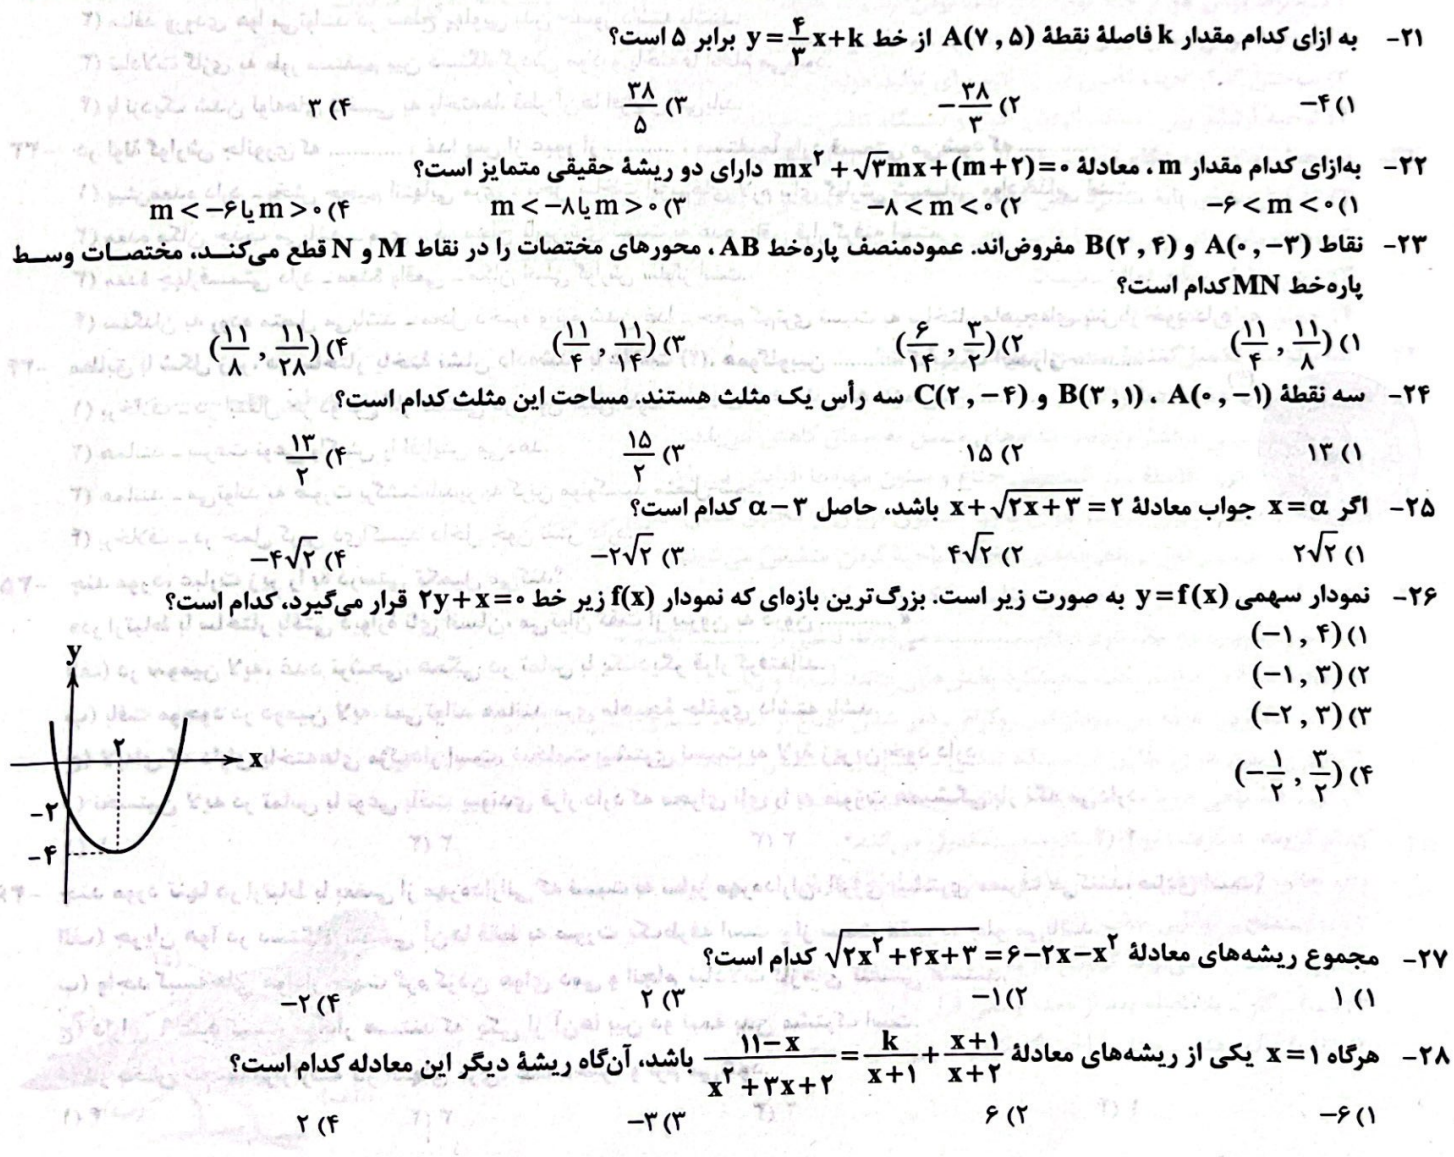 ۲۱- به ازای کدام مقدار k فاصلهٔ نقطهٔ A(۷, ۵) از خط y = ۴/۳ x + k برابر ۵ است؟
۱) −۴ ۲) −۳۸/۳ ۳) ۳۸/۵ ۴) ۳
۲۲- به‌ازای کدام مقدار m، معادلهٔ mx² + √۳mx + (m+۲) = ۰ دارای دو ریشهٔ حقیقی متمایز است؟
۱) −۶ < m < ۰ ۲) −۸ < m < ۰ ۳) m > ۰ یا m < −۸ ۴) m > ۰ یا m < −۶
۲۳- نقاط A(۰, −۳) و B(۲, ۴) مفروض‌اند. عمودمنصف پاره‌خط AB، محورهای مختصات را در نقاط M و N قطع می‌کند، مختصات وسط
پاره‌خط MN کدام است؟
۱) (۱۱/۴, ۱۱/۸) ۲) (۶/۱۴, ۳/۲) ۳) (۱۱/۴, ۱۱/۱۴) ۴) (۱۱/۸, ۱۱/۲۸)
۲۴- سه نقطهٔ A(۰, −۱)، B(۳, ۱) و C(۲, −۴) سه رأس یک مثلث هستند، مساحت این مثلث کدام است؟
۱) ۱۳ ۲) ۱۵ ۳) ۱۵/۲ ۴) ۱۳/۲
۲۵- اگر x = α جواب معادلهٔ x + √(۲x+۳) = ۲ باشد، حاصل α − ۳ کدام است؟
۱) ۲√۲ ۲) ۴√۲ ۳) −۲√۲ ۴) −۴√۲
۲۶- نمودار سهمی y = f(x) به صورت زیر است. بزرگ‌ترین بازه‌ای که نمودار f(x) زیر خط ۲y + x = ۰ قرار می‌گیرد، کدام است؟
۱) (−۱, ۴)
۲) (−۱, ۳)
۳) (−۲, ۳)
۴) (−۱/۲, ۳/۲)
y
۲
x
−۲
−۴
۲۷- مجموع ریشه‌های معادلهٔ √(۲x² + ۴x + ۳) = ۶ − ۲x − x² کدام است؟
۱) ۱ ۲) −۱ ۳) ۲ ۴) −۲
۲۸- هرگاه x = ۱ یکی از ریشه‌های معادلهٔ (۱۱−x)/(x²+۳x+۲) = k/(x+۱) + (x+۱)/(x+۲) باشد، آن‌گاه ریشهٔ دیگر این معادله کدام است؟
۱) −۶ ۲) ۶ ۳) −۳ ۴) ۲